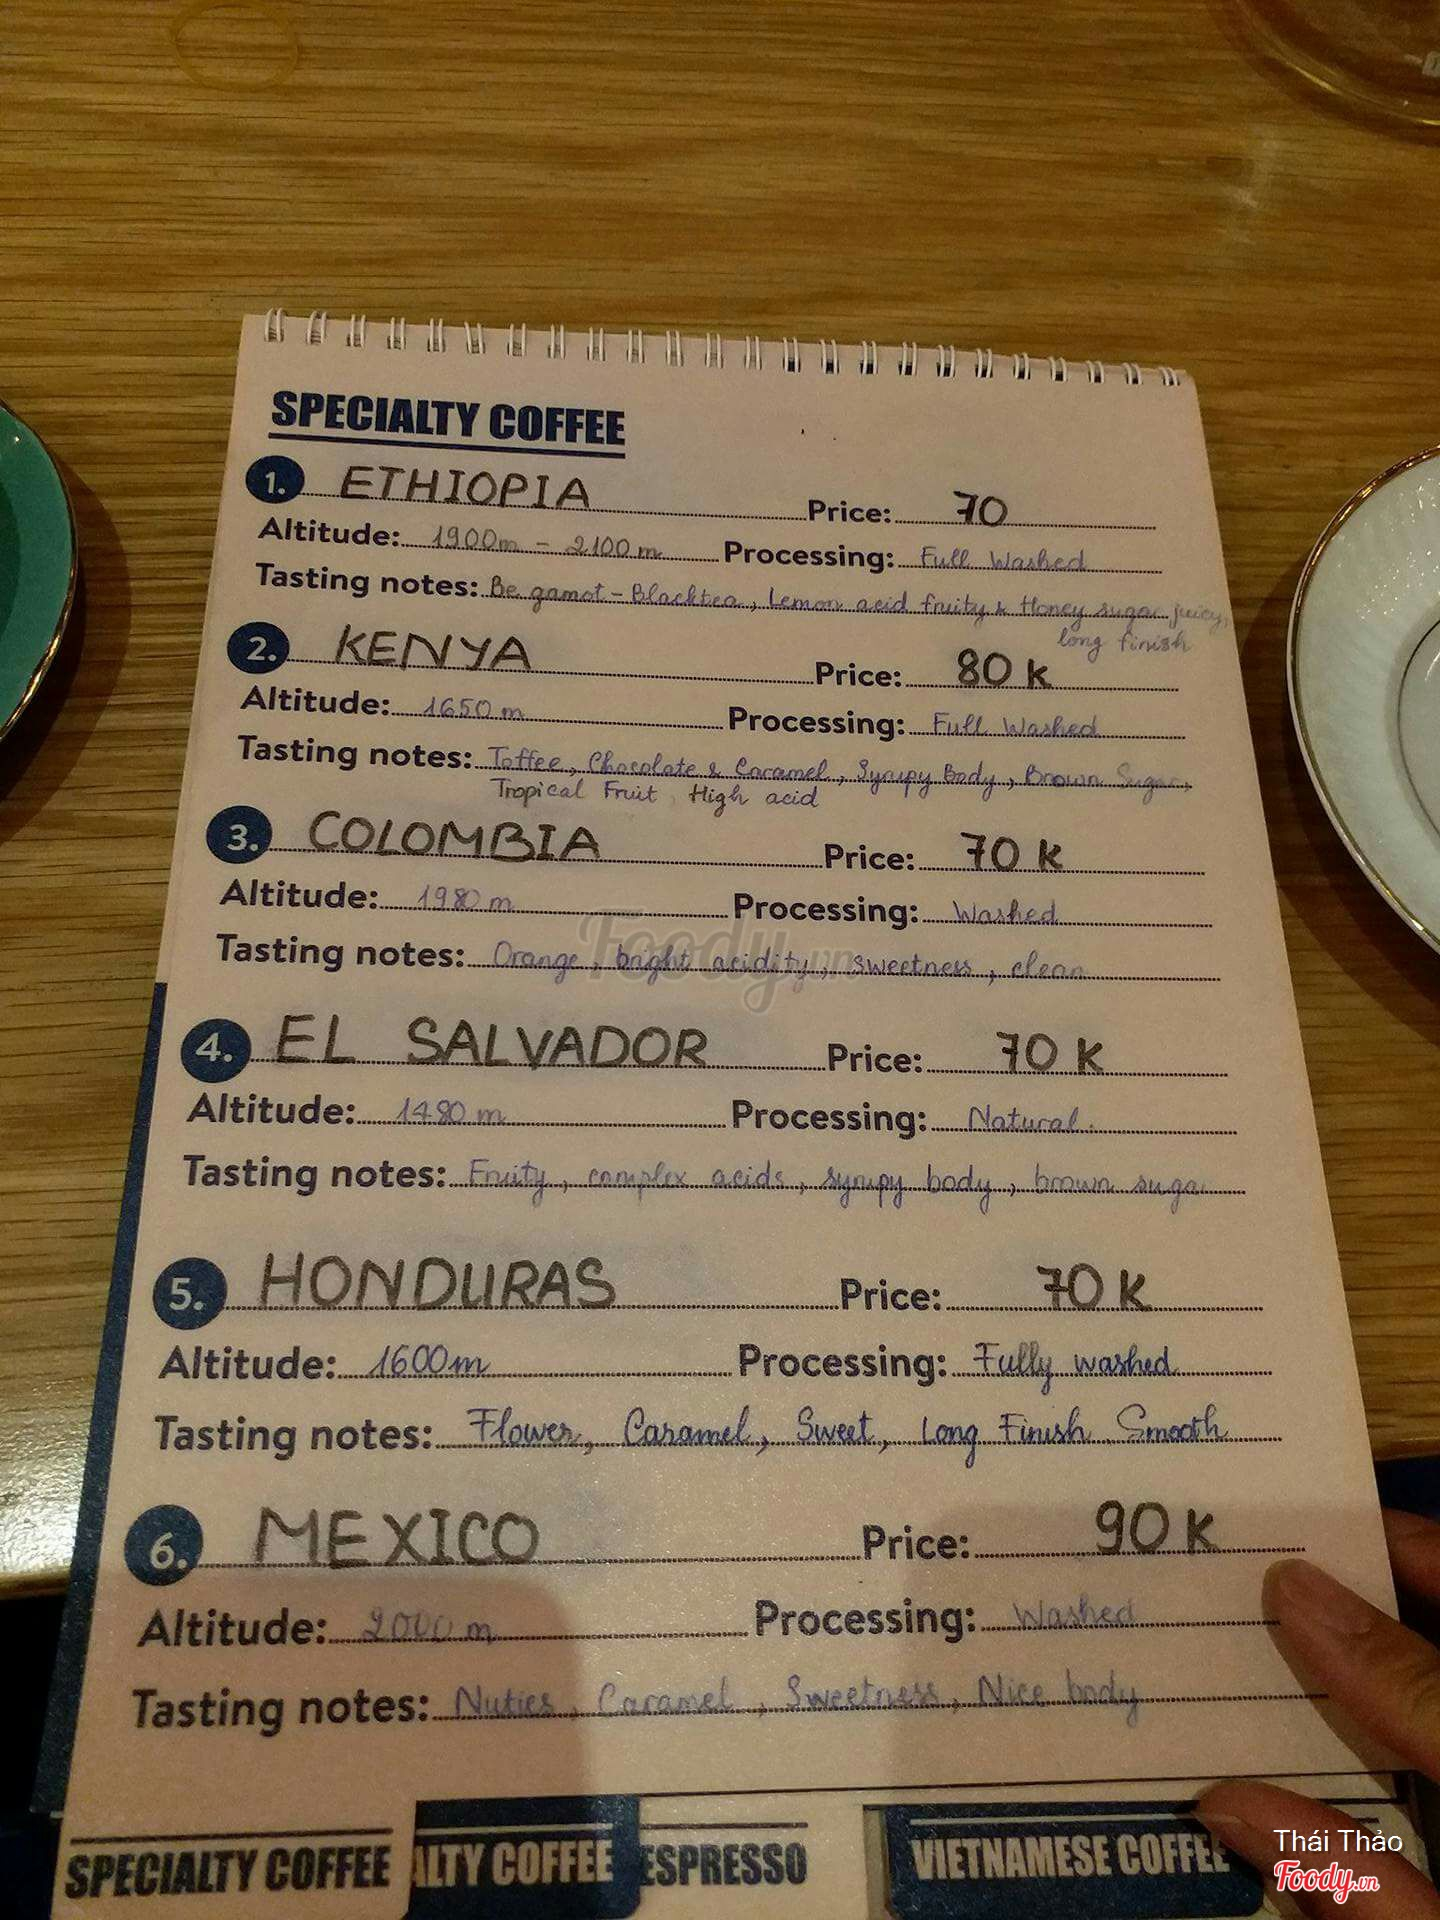 SPECIALTY COFFEE
1. ETHIOPIA Price: 70
Altitude: 1900m - 2100m Processing: Full Washed
Tasting notes: Be gamot - Blacktea, Lemon acid fruity & Honey sugar juicy,
long finish
2. KENYA Price: 80 K
Altitude: 1650 m Processing: Full Washed
Tasting notes: Toffee, Chocolate & Caramel, Syrupy Body, Brown Sugar,
Tropical Fruit, High acid
3. COLOMBIA Price: 70 K
Altitude: 1980 m Processing: Washed
Tasting notes: Orange, bright acidity, sweetness, clean
Foody.vn
4. EL SALVADOR Price: 70 K
Altitude: 1480 m Processing: Natural.
Tasting notes: Fruity, complex acids, syrupy body, brown sugar
5. HONDURAS Price: 70 K
Altitude: 1600m Processing: Fully washed
Tasting notes: Flower, Caramel, Sweet, Long Finish Smooth
6. MEXICO Price: 90 K
Altitude: 2000 m Processing: Washed
Tasting notes: Nuties, Caramel, Sweetness, Nice body
SPECIALTY COFFEE ALTY COFFEE ESPRESSO VIETNAMESE COFFEE
Thái Thảo
Foody.vn